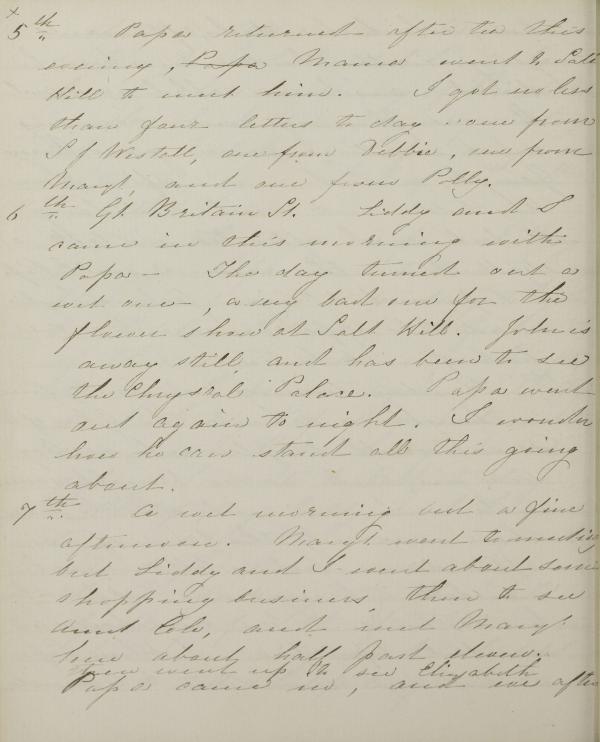 5th Papa returned after tea this
evening, Papa Mama went to Salt
Hill to meet him. I got no less
than four letters to day - one from
S J Westell, one from Debbie, one from
Margt, and one from Polly.
6th Gt. Britain St. Liddy and I
came in this morning with
Papa - The day turned out a
wet one -, a very bad one for the
flower show at Salt Hill. John is
away still and has been to see
the Chrystal Palace. Papa went
out again to night. I wonder
how he can stand all this going
about.
7th A wet morning but a fine
afternoon. Margt went to meeting
but Liddy and I went about some
shopping business, then to see
Aunt, and met Margt
here about half past eleven.
then went up to see Elizabeth
Papa came in, and we after